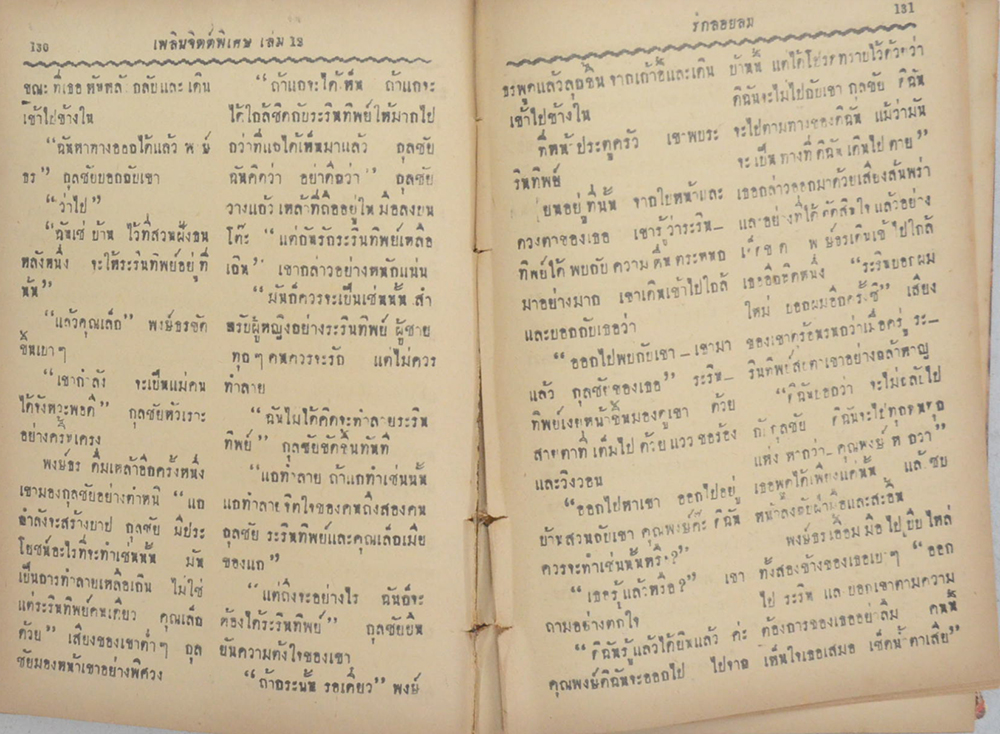 130
เพลินจิตต์พิเศษ เล่ม 12
ขณะ ที่เธอ หันหลัง กลับและ เดิน
เข้าไปข้างใน
“ฉันหาทางออกได้แล้ว พงษ์
ธร” กุลชัยบอกกับเขา
“ว่าไป”
“ฉันเช่าบ้าน ไว้ที่สวนฝั่งธน
หลังหนึ่ง จะให้ระรินทิพย์อยู่ที่
นั้น”
“แล้วคุณเล็ก” พงษ์ธรขัด
ขึ้นเบาๆ
“เขากำลัง จะเป็นแม่คน
ได้จังหวะพอดี” กุลชัยหัวเราะ
อย่างครื้นเครง
พงษ์ธร ดื่มเหล้าอีกครั้งหนึ่ง
เขามองกุลชัยอย่างตำหนิ “แก
กำลังจะสร้างบาป กุลชัย มีประ
โยชน์อะไรที่จะทำเช่นนั้น มัน
เป็นการทำลายเหลือเกิน ไม่ใช่
แต่ระรินทิพย์คนเดียว คุณเล็ก
ด้วย” เสียงของเขาต่ำๆ กุล
ชัยมองหน้าเขาอย่างพิศวง
“ถ้าแกจะได้เห็น ถ้าแกจะ
ได้ใกล้ชิดกับระรินทิพย์ให้มากไป
กว่าที่แกได้เห็นมาแล้ว กุลชัย
ฉันคิดว่า อย่าดีกว่า” กุลชัย
วางแก้ว เหล้าที่ถืออยู่ใน มือลงบน
โต๊ะ “แต่ฉันรักระรินทิพย์เหลือ
เกิน” เขากล่าวอย่างหนักแน่น
“มันก็ควรจะเป็นเช่นนั้น สำ
หรับผู้หญิงอย่างระรินทิพย์ ผู้ชาย
ทุกๆ คนควรจะรัก แต่ไม่ควร
ทำลาย
“ฉันไม่ได้คิดจะทำลายระริน
ทิพย์” กุลชัยขัดขึ้นทันที
“แกทำลาย ถ้าแกทำเช่นนั้น
แกทำลายจิตใจของคนถึงสองคน
กุลชัย ระรินทิพย์และคุณเล็กเมีย
ของแก”
“แต่ถึงจะอย่างไร ฉันก็จะ
ต้องได้ระรินทิพย์” กุลชัยยืน
ยันความตั้งใจของเขา
“ถ้ากระนั้น รอเดี๋ยว” พงษ์
รักลอยลม
131
ธรพูดแล้วลุกขึ้น จากเก้าอี้และเดิน
เข้าไปข้างใน
ที่หน้าประตูครัว เขาพบระ
รินทิพย์
ยืนอยู่ที่นั้น จากใบหน้าและ
ดวงตาของเธอ เขารู้ว่าระริน_
ทิพย์ได้ พบกับ ความ ตื่น ตระหนก
มาอย่างมาก เขาเดินเข้าไปใกล้
และบอกกับเธอว่า
“ออกไปพบกับเขา_เขามา
แล้ว กุลชัยของเธอ” ระริน_
ทิพย์เงยหน้าขึ้นมองดูเขา ด้วย
สายตาที่ เต็มไป ด้วย แวว ขอร้อง
และวิงวอน
“ออกไปหาเขา ออกไปอยู่
บ้านสวนกับเขา คุณพงษ์คะ ดิฉัน
ควรจะทำเช่นนั้นหรือ?”
“เธอรู้แล้วหรือ?” เขา
ถามอย่างตกใจ
“ดิฉันรู้แล้วได้ยินแล้ว ค่ะ
คุณพงษ์ดิฉันจะออกไป ไปจาก
บ้านนี้ แต่ได้โปรดทราบไว้ด้วยว่า
ดิฉันจะไม่ไปกับเขา กุลชัย ดิฉัน
จะไปตามทางของดิฉัน แม้ว่ามัน
จะเป็น ทางที่ ดิฉัน เดินไป ตาย”
เธอกล่าวออกมาด้วยเสียงสั่นพร่า
และอย่างที่ได้ ตัดสินใจ แล้วอย่าง
เด็ดขาด พงษ์ธรเดินเข้าไปใกล้
เธออีกนิดหนึ่ง “ระรินบอกผม
ใหม่ บอกผมอีกครั้งซิ” เสียง
ของเขาดูร้อนรนกว่าเมื่อครู่ ระ_
รินทิพย์สบตาเขาอย่างกล้าหาญ
“ดิฉันบอกว่า จะไม่กลับไป
กับกุลชัย ดิฉันจะไปทุกหนทุก
แห่ง หากว่า_คุณพงษ์ หากว่า”
เธอพูดได้เพียงแค่นั้น แล้วซบ
หน้าลงกับฝ่ามือและสะอื้น
พงษ์ธรเอื้อม มือ ไปจับ ไหล่
ทั้งสองข้างของเธอเบาๆ “ออก
ไป ระริน และ บอกเขาตามความ
ต้องการของเธออย่าลืม คนนี้
เห็นใจเธอเสมอ เช็ดน้ำตาเสีย”